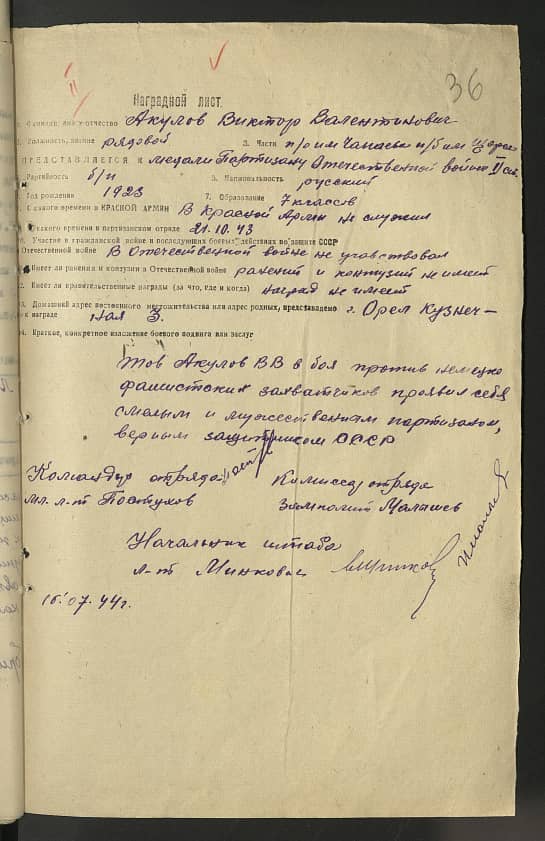 36
Наградной лист.
1. Фамилия, имя, отчество Акулов Виктор Валентинович
2. Должность, звание рядовой 3. Части п/о им Чапаева п/б им
ПРЕДСТАВЛЯЕТСЯ К медали Партизану Отечественной войны II ст.
Партийность б/п 5. Национальность русский
Год рождения 1923 7. Образование 7 классов
С какого времени в КРАСНОЙ АРМИИ В Красной Армии не служил
С какого времени в партизанском отряде 21.10.43
10. Участие в гражданской войне и последующих боевых действиях по защите СССР
Отечественной войне В Отечественной войне не участвовал
Имеет ли ранения и контузии в Отечественной войне ранений и контузий не имеет
12. Имеет ли правительственные награды (за что, где и когда) наград не имеет
13. Домашний адрес постоянного местожительства или адрес родных, представляемого г. Орел Кузнеч-
к награде ная 3.
14. Краткое, конкретное изложение боевого подвига или заслуг
Тов Акулов ВВ в боях против немецко
фашистских захватчиков проявил себя
смелым и мужественным партизаном,
верным защитником СССР
Командир отряда Комиссар отряда
Мл. л-т Пастухов Замполит Малышев
Начальник штаба
Л-т Минков
15.07.44г.